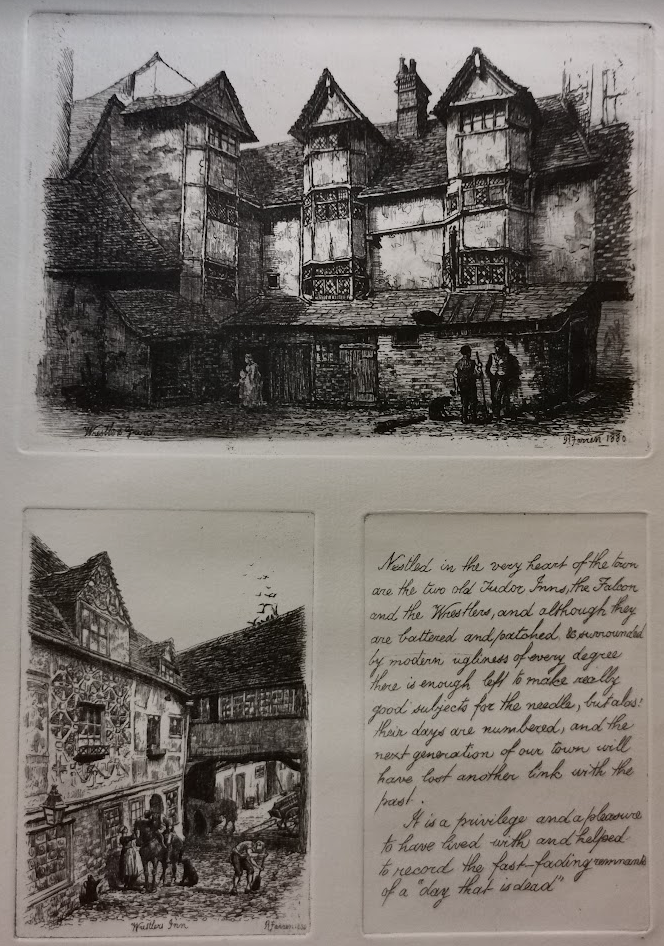 Wrestlers Yard
R Farren 1880
Wrestlers Inn
R Farren 1880
Nestled in the very heart of the town
are the two old Tudor Inns, the Falcon
and the Wrestlers, and although they
are battered and patched, & surrounded
by modern ugliness of every degree
there is enough left to make really
good subjects for the needle, but alas!
their days are numbered, and the
next generation of our town will
have lost another link with the
past.
It is a privilege and a pleasure
to have lived with and helped
to record the fast-fading remnants
of a "day that is dead"